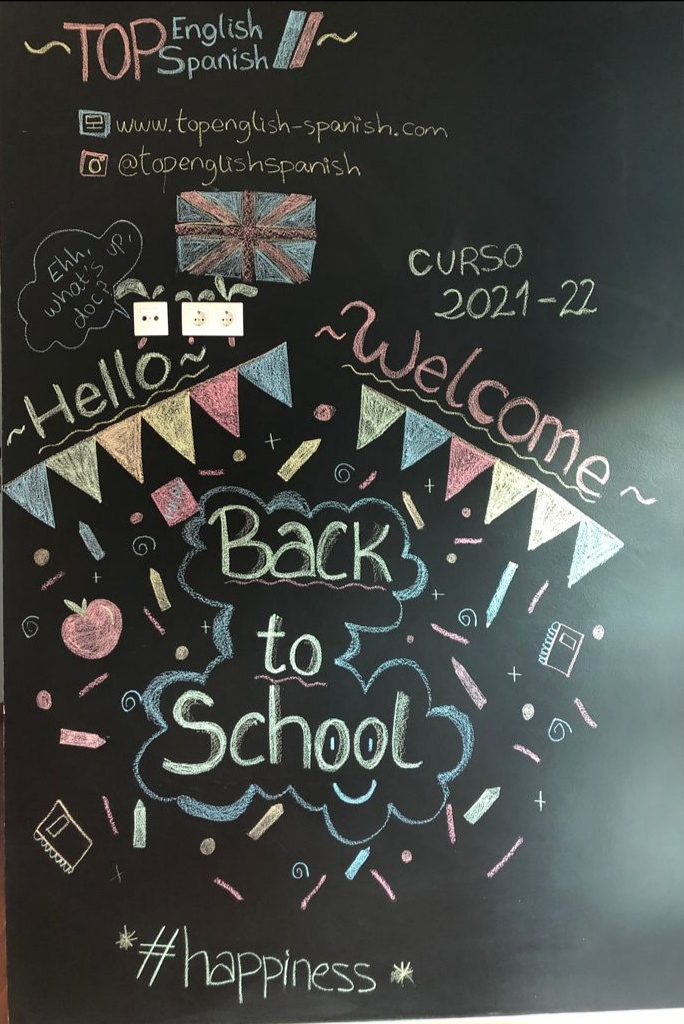 TOP English
Spanish
www.topenglish-spanish.com
@topenglishspanish
Ehh,
what's up,
doc?
CURSO
2021-22
~Hello~
~Welcome~
Back
to
School
*#happiness*